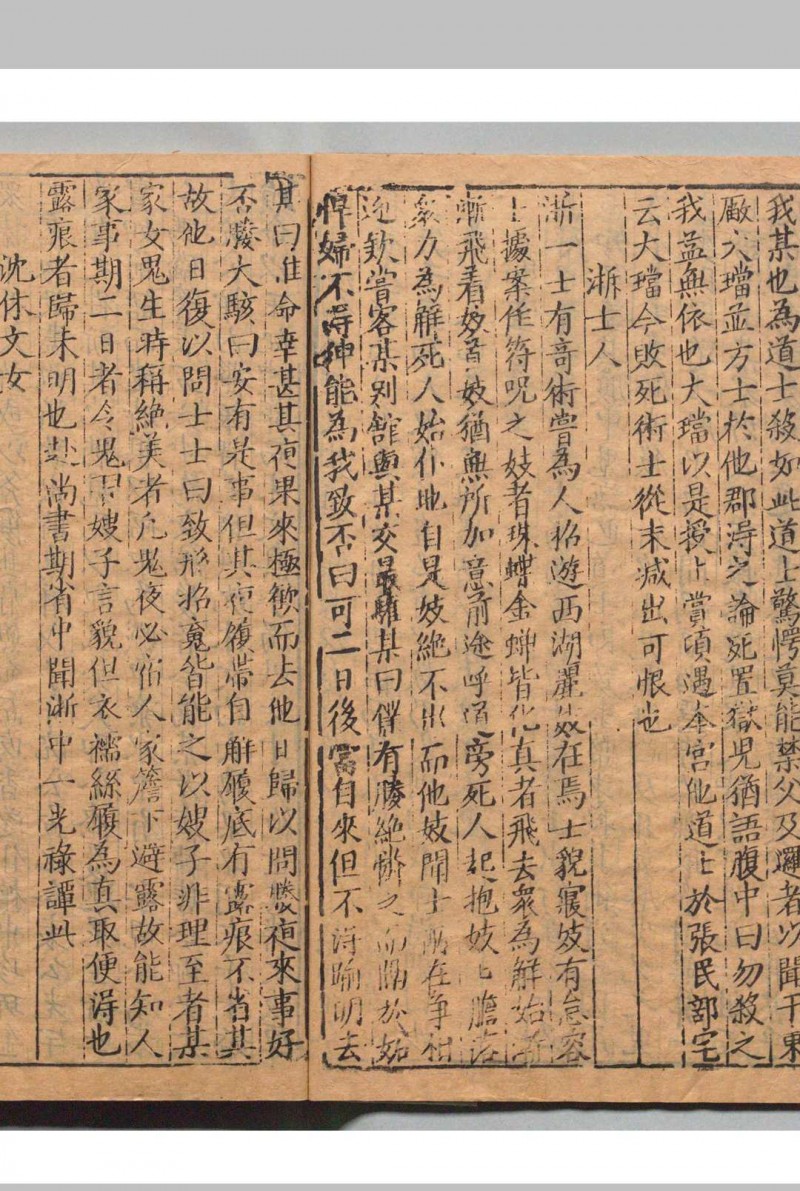 我某也為道士殺如此道士驚愕莫能禁父及邏者以聞于東
廠大璫並方士於他郡淂之論死置獄児猶語腹中曰勿殺之
我益無依也大璫以是授上賞項遇本宮他道士於張民部宅
云大璫今敗死術士從末减出可恨也
浙士人
浙一士有竒術嘗為人招遊西湖麗妓在焉士貌寢妓有怠容
士據案作符呪之妓者珠蟬金蟬皆化真者飛去衆為解始
漸飛着妓首妓猶無所加意前途呼道旁死人起抱妓上膽落
衆力為解死人始仆地自是妓絶不出而他妓聞士所在争相
迎欵嘗客某別舘與某交最驩某曰伴有勝絶憐之而隔於姊
悍婦不淂神能為我致否曰可二日後當自來但不淂踰明去
其曰惟命幸甚其夜果來極歡而去他日歸以問嫂夜來事好
否嫂大駭曰安有是事但其夜履帶自解履底有露痕不省其
故他日復以問士士曰致形招䰟皆能之以嫂子非理至者某
家女鬼生時稱絶美者凢鬼夜必宿人家簷下避露故能知人
家事期二日者令鬼習嫂子言貌但衣襦絲履為真取便淂也
露痕者歸未明也赴尚書期省中聞浙中一光祿譚此
沈休文女